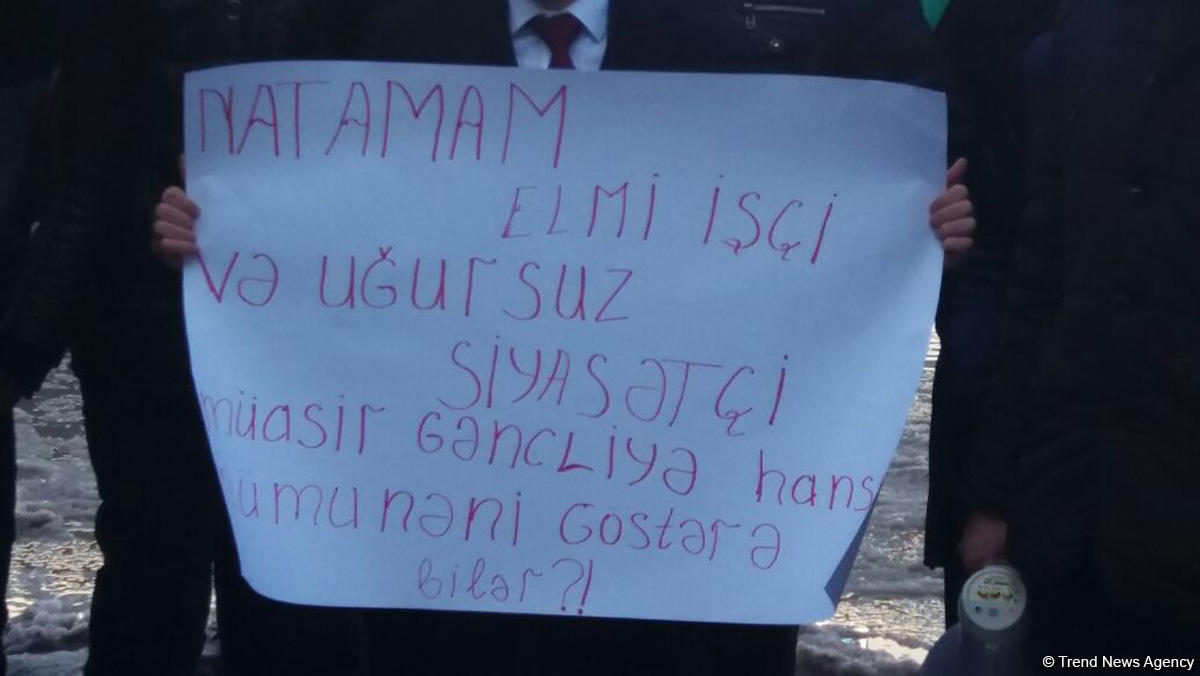 NATAMAM
ELMİ İŞÇİ
Və UĞUrSUZ
SİYASƏTÇİ
müasir Gəncliyə hans
nümunəni Göstərə
bilər?!
© Trend News Agency